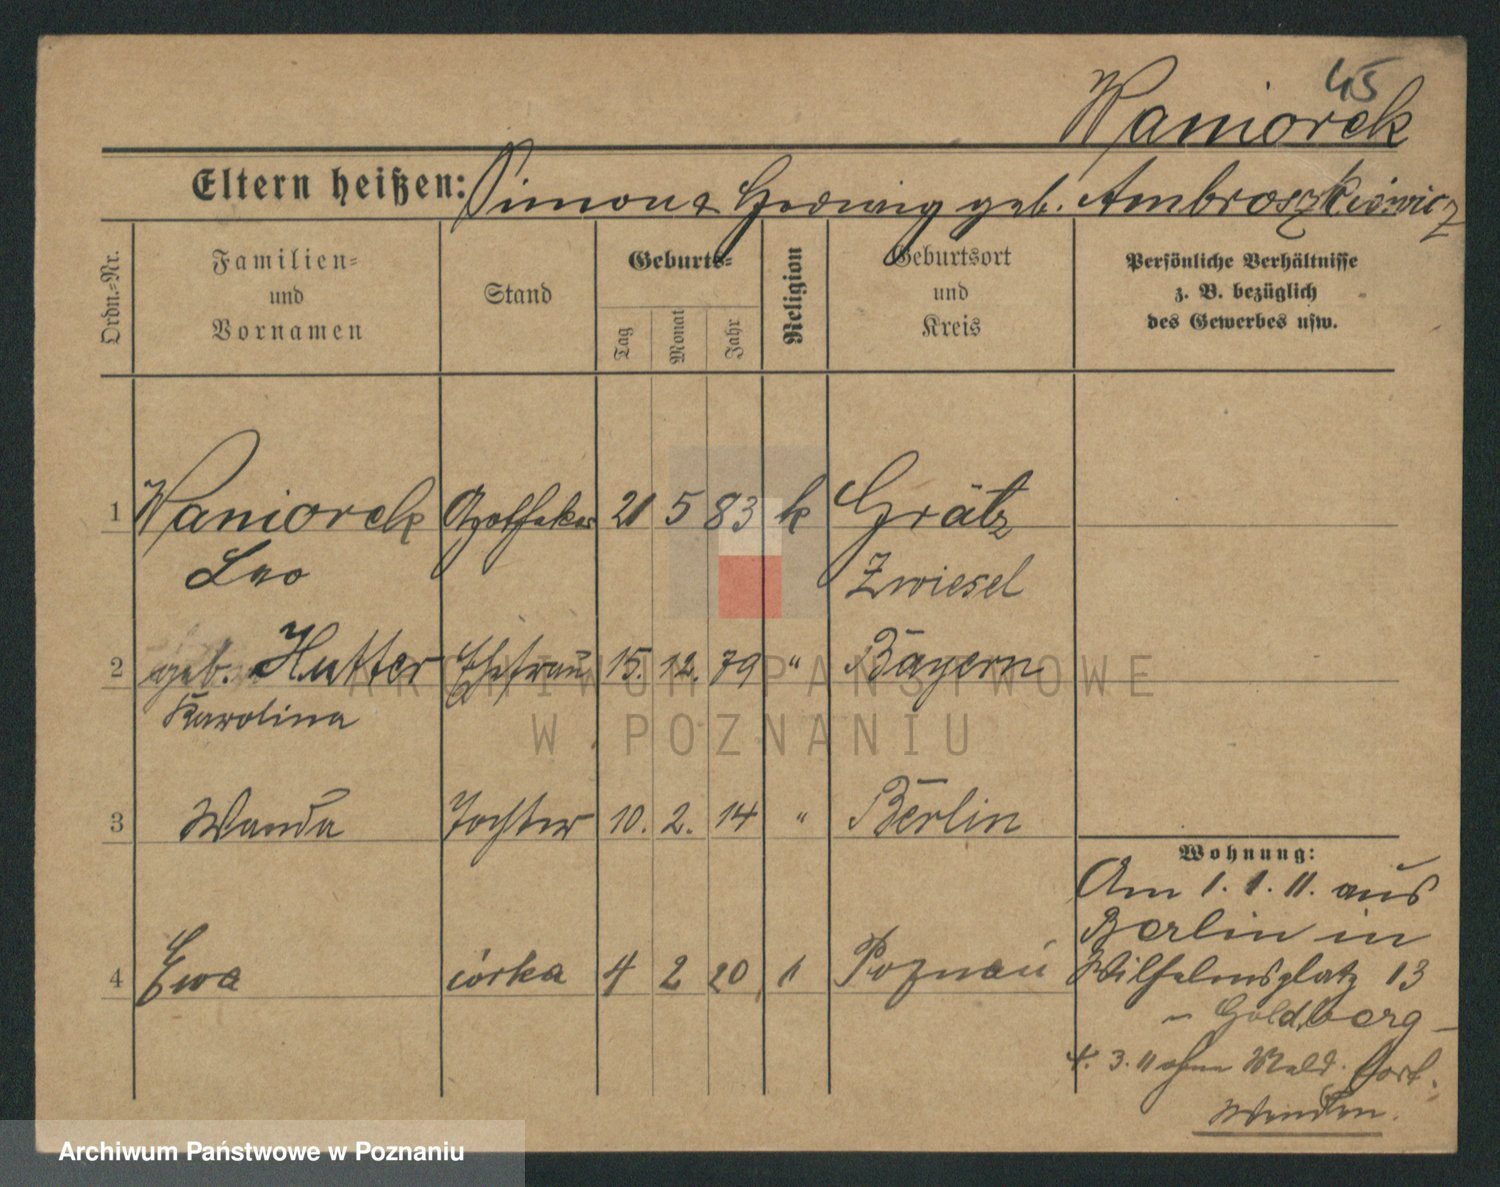 45
Waniorek
Eltern heißen: Simon & Hedwig geb. Ambroszkiewicz
Ordn.=Nr.
Familien=
und
Vornamen
Stand
Geburts=
Tag
Monat
Jahr
Religion
Geburtsort
und
Kreis
Persönliche Verhältnisse
z. B. bezüglich
des Gewerbes usw.
1 Waniorek Apotheker 21 5 83 k Grätz
Leo Zwiesel
2 geb. Hutter Ehefrau 15. 12. 79 " Bayern
Karolina
3 Wanda Tochter 10. 2. 14 " Berlin
Wohnung:
Am 1. 1. 11. aus
Berlin in
4 Ewa córka 4 2 20 Poznań Wilhelmsplatz 13
Goldberg
4. 3. 11 ohne Meld. fort.
ARCHIWUM PAŃSTWOWE
W POZNANIU
Archiwum Państwowe w Poznaniu